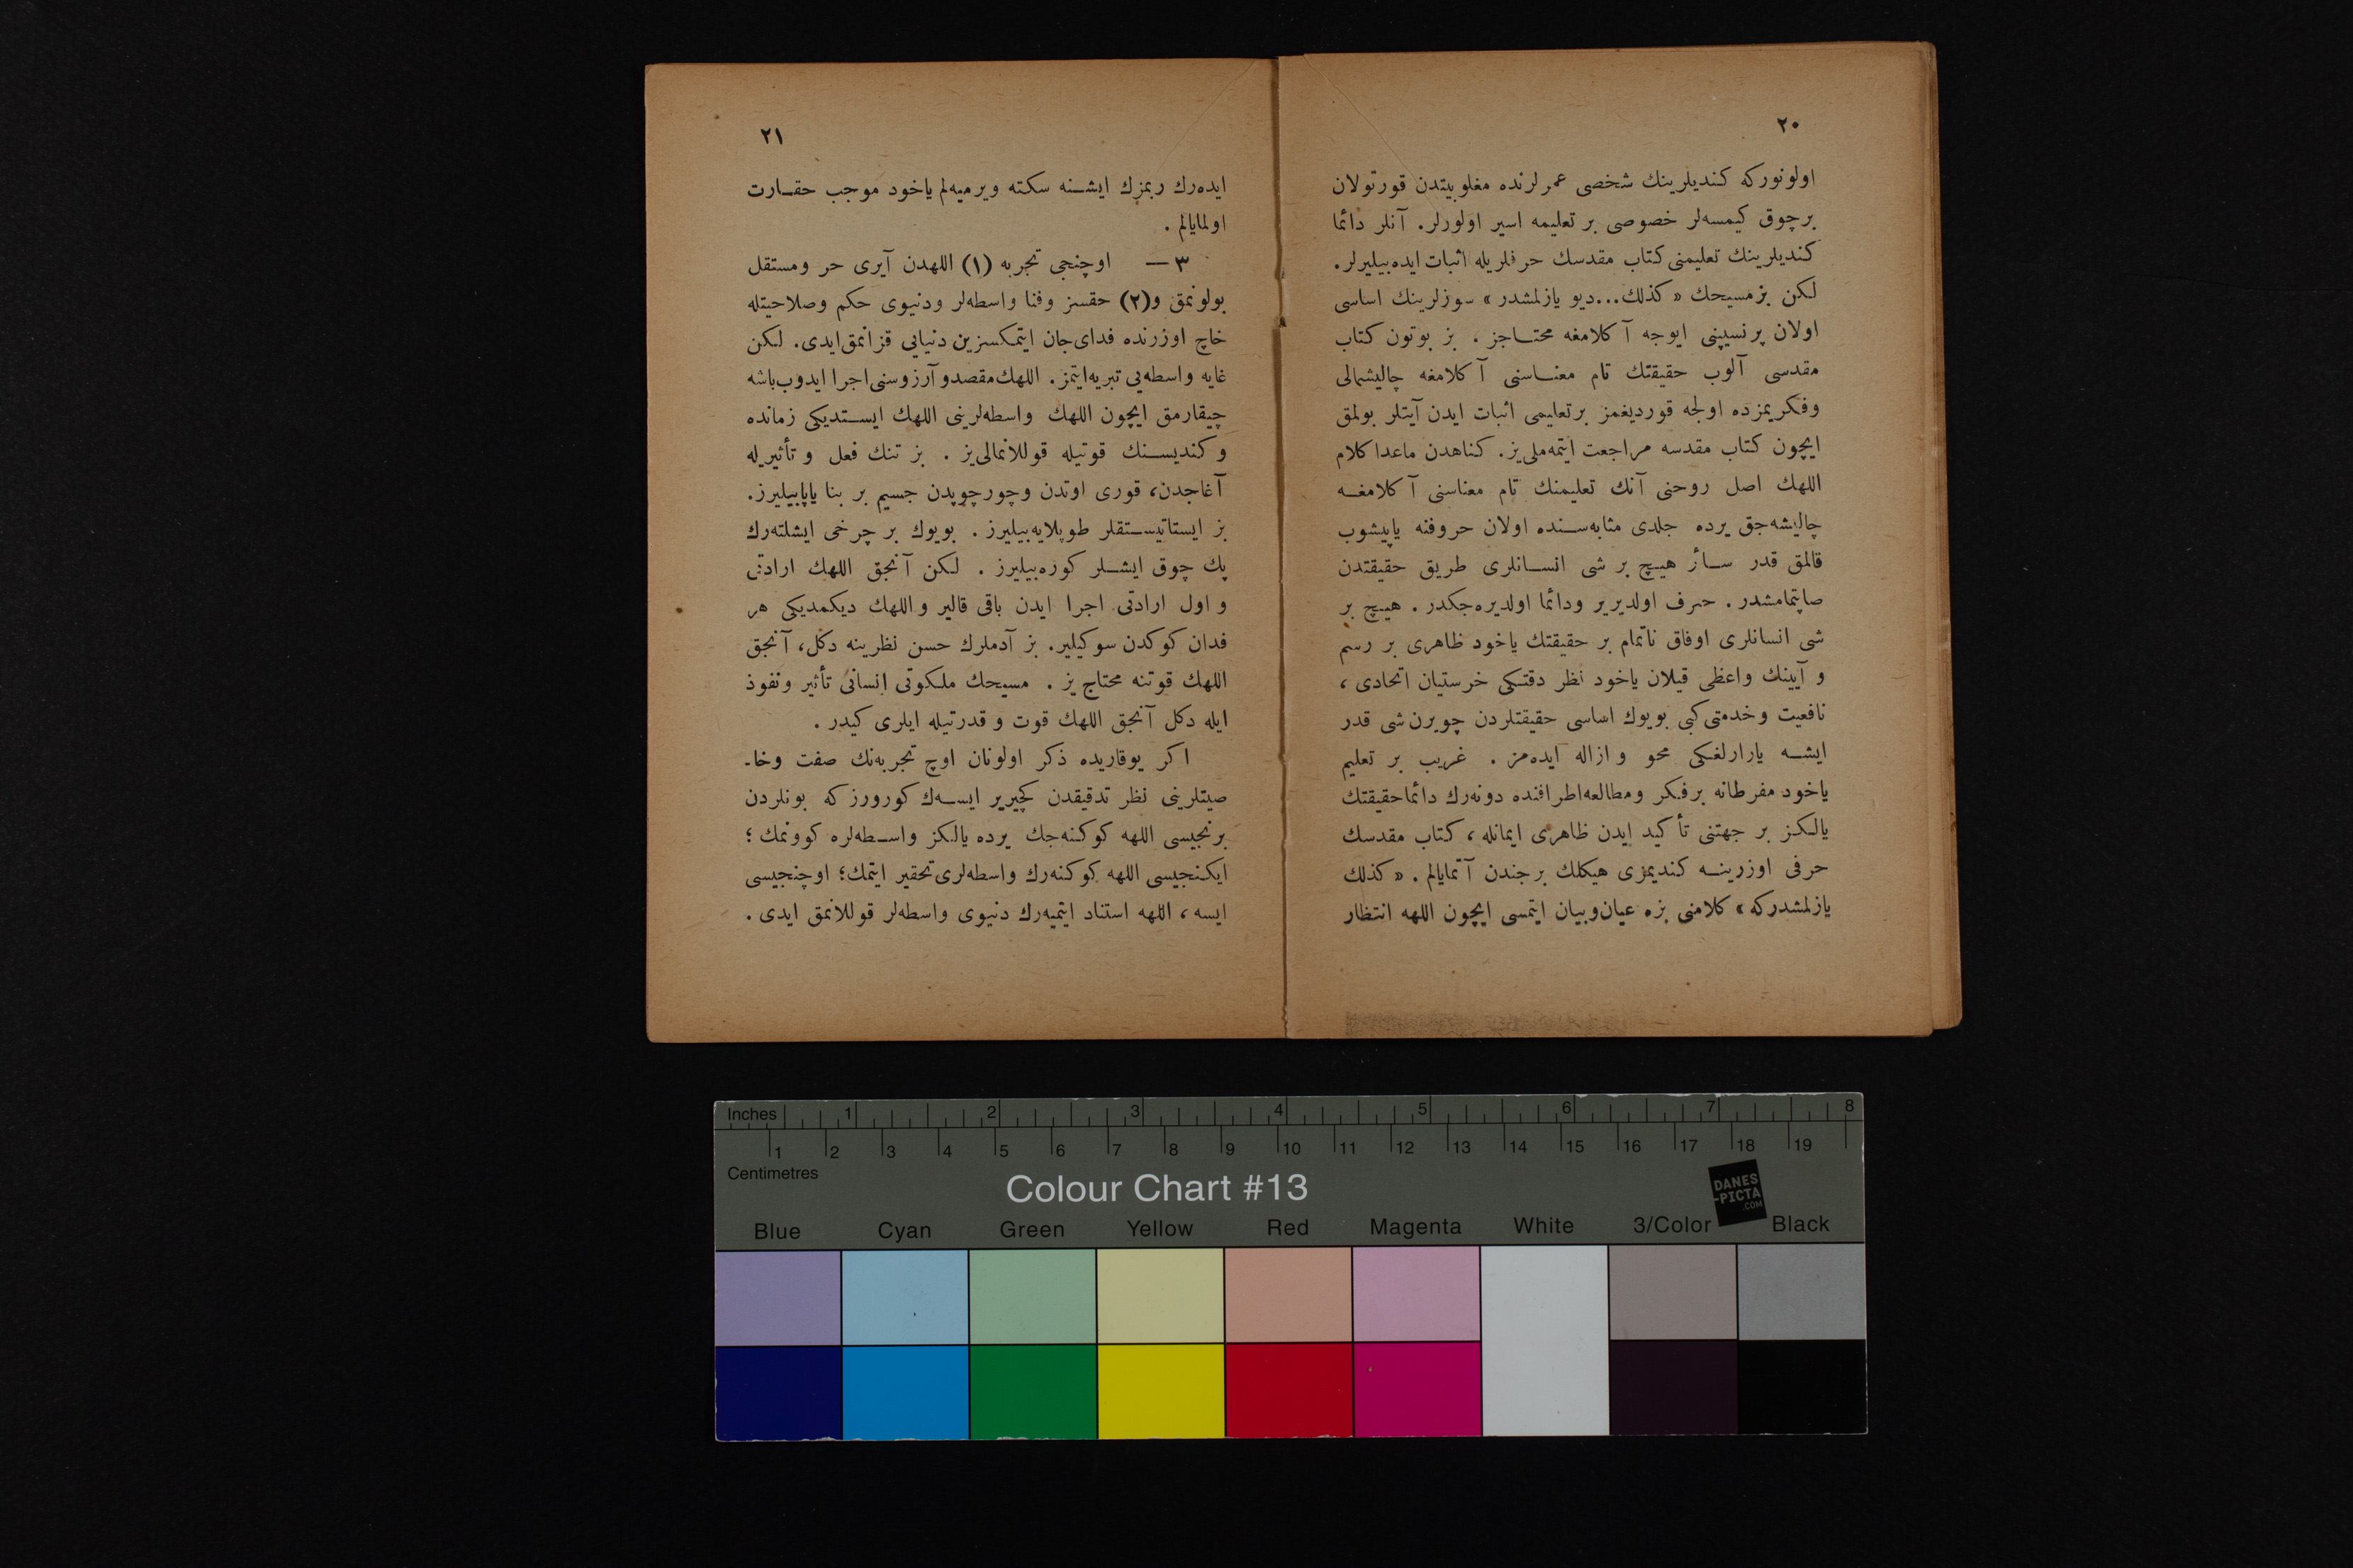 ٢٠
اولونوركه كنديلرينك شخصی عمرلرنده مغلوبيتدن قورتولان
برچوق كيمسه‌لر خصوصی بر تعليمه اسير اولورلر. آنلر دائما
كنديلرينك تعليمنی كتاب مقدسك حرفلريله اثبات ايده‌بيليرلر.
لكن بز مسيحك « كذلك...ديو يازلمشدر » سوزلرينك اساسی
اولان پرنسيپنی ايوجه آكلامغه محتاجز . بز بوتون كتاب
مقدسی آلوب حقيقتك تام معناسنی آكلامغه چاليشمالی
وفكريمزده اولجه قورديغمز برتعليمی اثبات ايدن آيتلر بولمق
ايچون كتاب مقدسه مراجعت ايتمه‌ملی‌يز. كناهدن ماعدا كلام
اللهك اصل روحنی آنك تعليمنك تام معناسنی آكلامغه
چاليشه‌جق يرده جلدی مثابه‌سنده اولان حروفنه ياپيشوب
قالمق قدر سائر هيچ بر شی انسانلری طريق حقيقتدن
صاپتمامشدر . حرف اولديرير ودائما اولديره‌جكدر . هيچ بر
شی انسانلری اوفاق ناتمام بر حقيقتك ياخود ظاهری بر رسم
و آيينك واعظی قيلان ياخود نظر دقتكی خرستيان اتحادی ،
نافعيت وخدمتی كبی بويوك اساسی حقيقتلردن چويرن شی قدر
ايشه يارارلغكی محو و ازاله ايده‌مز . غريب بر تعليم
ياخود مفرطانه برفكر ومطالعه اطرافنده دونه‌رك دائما حقيقتك
يالكز بر جهتنی تأكيد ايدن ظاهری ايمانله ، كتاب مقدسك
حرفی اوزرينه كنديمزی هيكلك برجندن آتمايالم . « كذلك
يازلمشدركه » كلامنی بزه عيان‌وبيان ايتمسی ايچون اللهه انتظار
٢١
ايده‌رك ربمزك ايشنه سكته ويرميه‌لم ياخود موجب حقارت
اولمايالم .
٣ — اوچنجی تجربه (١) اللهدن آيری حر ومستقل
بولونمق و(٢) حقسز وفنا واسطه‌لر ودنيوی حكم وصلاحيتله
خاچ اوزرنده فدای‌جان ايتمكسزين دنيايی قزانمق‌ايدی. لكن
غايه واسطه‌يی تبريه‌ايتمز. اللهك‌مقصدو آرزوسنی‌اجرا ايدوب‌باشه
چيقارمق ايچون اللهك واسطه‌لرينی اللهك ايستديكی زمانده
وكنديسنك قوتيله قوللانمالی‌يز . بز تنك فعل و تأثيريله
آغاجدن، قوری اوتدن وچورچوپدن جسيم بر بنا ياپابيليرز.
بز ايستاتيستقلر طوپلايه‌بيليرز . بويوك بر چرخی ايشلته‌رك
پك چوق ايشلر كوره‌بيليرز . لكن آنجق اللهك ارادتی
و اول ارادتی اجرا ايدن باقی قالير و اللهك ديكمديكی هر
فدان كوكدن سوكيلير. بز آدملرك حسن نظرينه دكل، آنجق
اللهك قوتنه محتاج يز . مسيحك ملكوتی انسانی تأثير ونفوذ
ايله دكل آنجق اللهك قوت و قدرتيله ايلری كيدر .
اكر يوقاريده ذكر اولونان اوچ تجربه‌نك صفت وخا-
صيتلرينی نظر تدقيقدن كچيرير ايسه‌ك كورورزكه بونلردن
برنجيسی اللهه كوكنه‌جك يرده يالكز واسطه‌لره كوونمك ؛
ايكنجيسی اللهه كوكنه‌رك واسطه‌لری تحقير ايتمك؛ اوچنجيسی
ايسه ، اللهه استناد ايتميه‌رك دنيوی واسطه‌لر قوللانمق ايدی .
Inches 1 2 3 4 5 6 7 8
1 2 3 4 5 6 7 8 9 10 11 12 13 14 15 16 17 18 19
Centimetres
Colour Chart #13
DANES
-PICTA
.COM
Blue Cyan Green Yellow Red Magenta White 3/Color Black